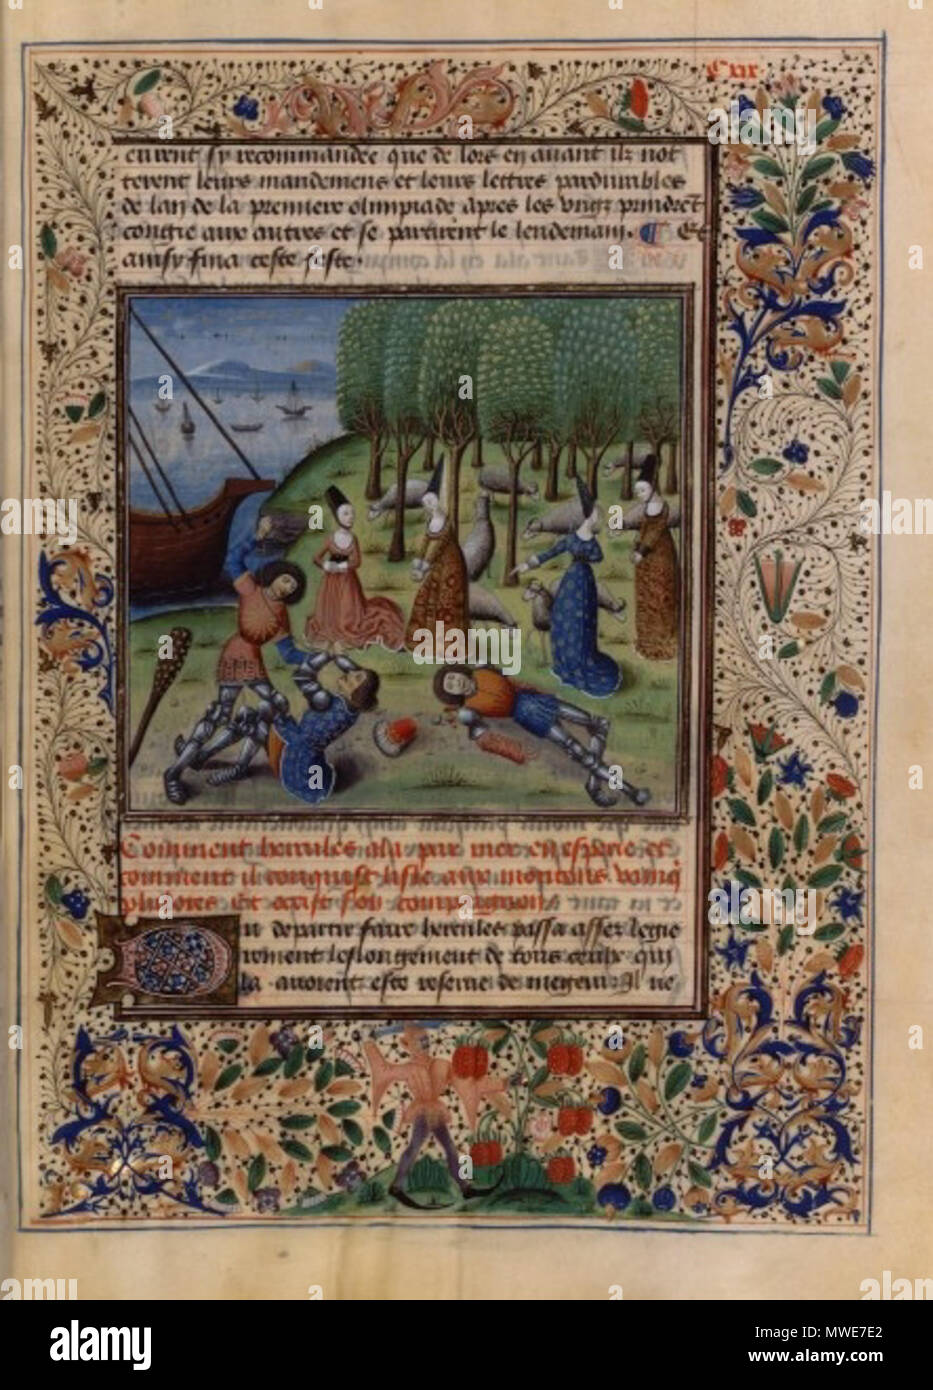 Cxix
eurent sy recommandee que de lors en auant ilz not
terent leurs mandemens et leurs lettres pardurables
de lan de la premiere olimpiade apres les vngz prindrent
congie aux autres et se partirent le lendemain. Et
ainsy fina ceste feste.
Comment hercules ala par mer en et
comment il conquist lisle aux moutons
et occist son compagnon
u departir faire hercules passa assez legie
rement les longement de tous ceulx qui
la auoient este Il ne
alamy
Image ID: MWE7E2
www.alamy.com